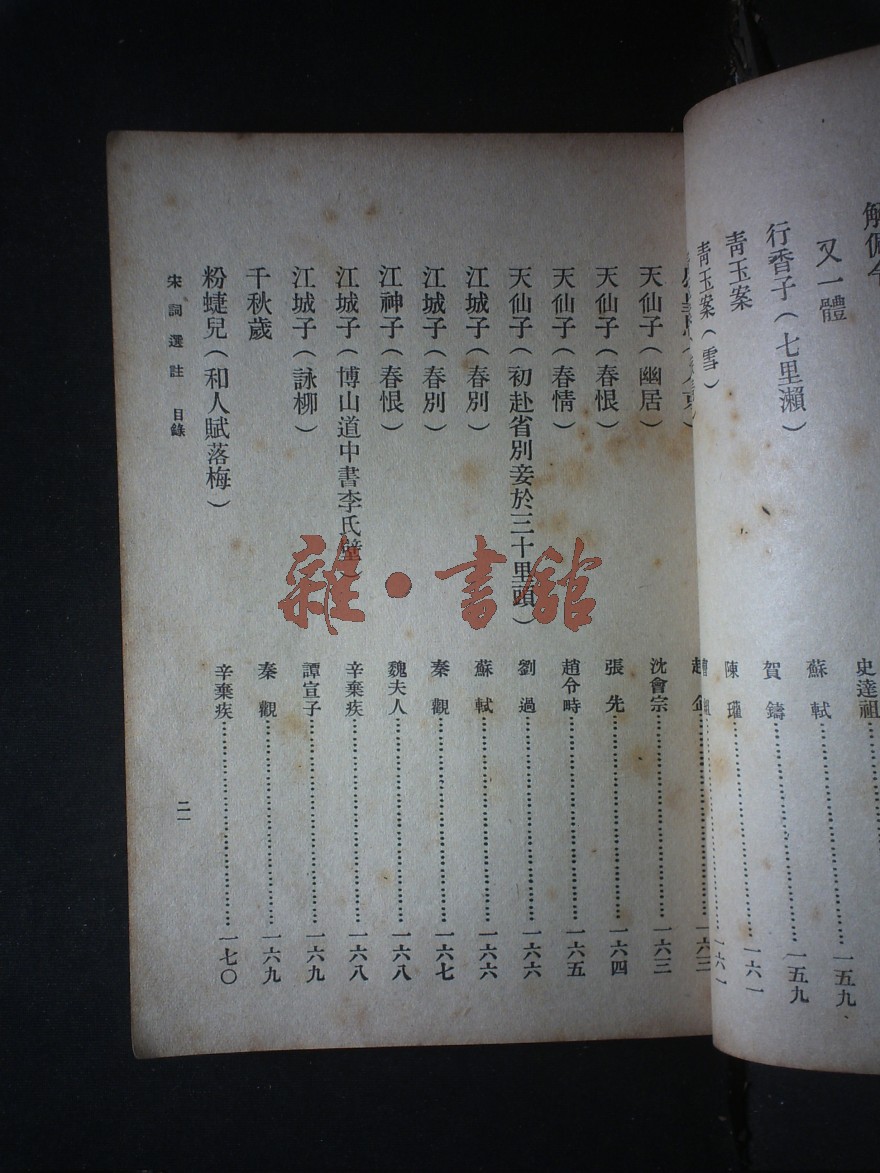 又一體 史達祖
行香子（七里瀨） 蘇軾……一五九
青玉案 賀鑄……一五九
青玉案（雪） 陳瓘……一六一
趙企
天仙子（幽居） 沈會宗……一六三
天仙子（春恨） 張先……一六四
天仙子（春情） 趙令時……一六五
天仙子（初赴省別妾於三十里頭） 劉過……一六六
江城子（春別） 蘇軾……一六六
江城子（春別） 秦觀……一六七
江神子（春恨） 魏夫人……一六八
江城子（博山道中書李氏壁） 辛棄疾……一六八
江城子（詠柳） 譚宣子……一六九
千秋歲 秦觀……一六九
粉蝶兒（和人賦落梅） 辛棄疾……一七〇
宋詞選註 目錄 二一
雜·書館